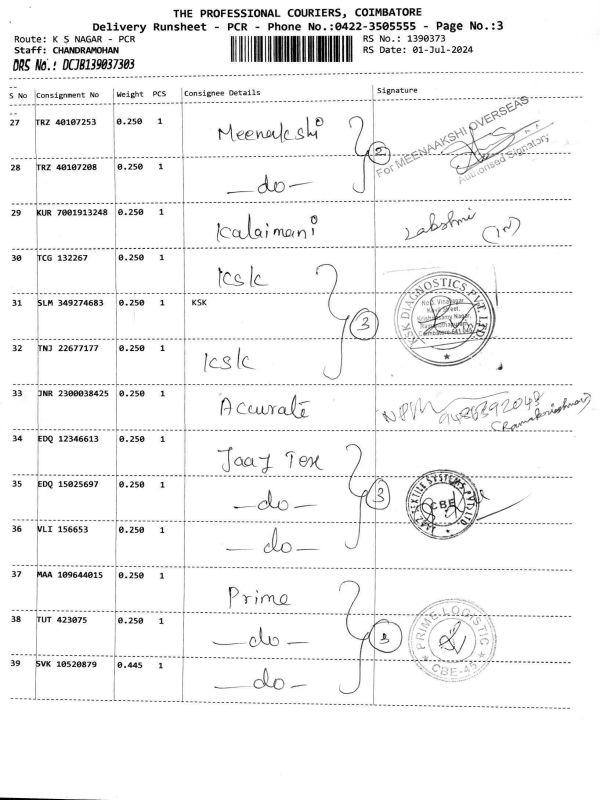 THE PROFESSIONAL COURIERS, COIMBATORE
Delivery Runsheet - PCR - Phone No.:0422-3505555 - Page No.:3
Route: K S NAGAR - PCR RS No.: 1390373
Staff: CHANDRAMOHAN RS Date: 01-Jul-2024
DRS No.: DCJB139037303
S No Consignment No Weight PCS Consignee Details Signature
27 TRZ 40107253 0.250 1 Meenakshi
2
For MEENAAKSHI OVERSEAS
Authorised Signatory
28 TRZ 40107208 0.250 1 —do—
29 KUR 7001913248 0.250 1 Kalaimani Lakshmi
30 TCG 132267 0.250 1 KSK
31 SLM 349274683 0.250 1 KSK
3
KSK DIAGNOSTICS PVT. LTD.
Krishnasamy Nagar,
Ramanathapuram,
Coimbatore-641 045
32 TNJ 22677177 0.250 1 KSK
33 JNR 2300038425 0.250 1 Accurate
(Ramakrishnan)
34 EDQ 12346613 0.250 1 Jaay Tex
35 EDQ 15025697 0.250 1 —do—
3
CBE
36 VLI 156653 0.250 1 —do—
37 MAA 109644015 0.250 1 Prime
38 TUT 423075 0.250 1 —do—
3
PRIME LOGISTIC
CBE-45
39 SVK 10520879 0.445 1 —do—